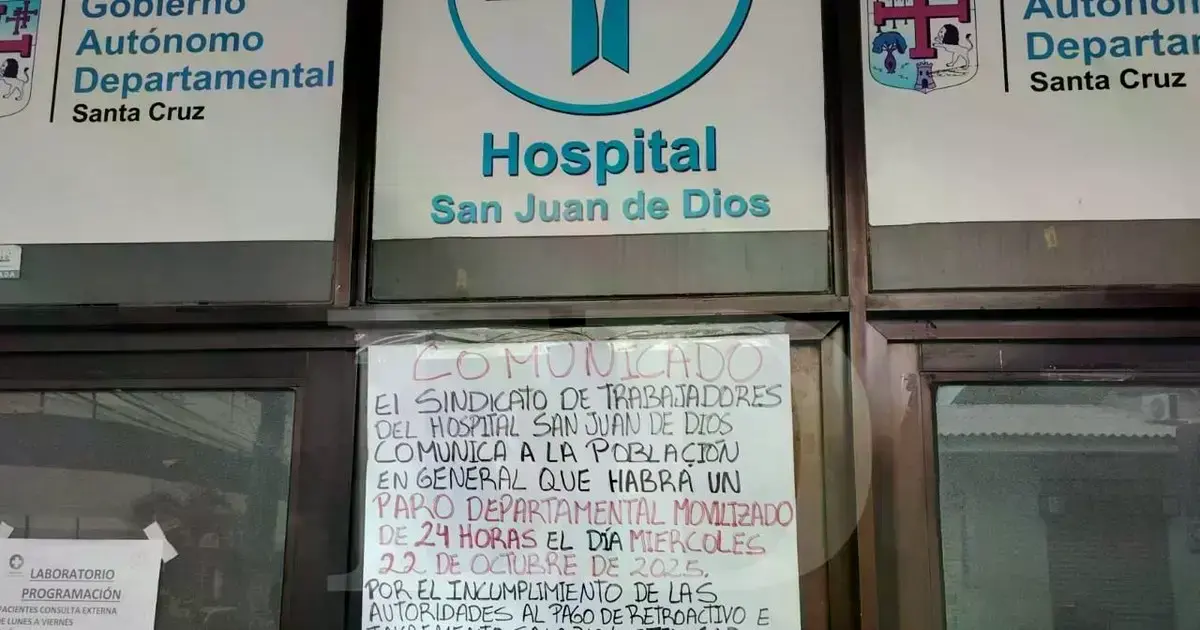 Gobierno
Autónomo
Departamental
Santa Cruz
Hospital
San Juan de Dios
Departa
Santa Cruz
COMUNICADO
El SINDICATO DE TRABAJADORES
DEL HOSPITAL SAN JUAN DE DIOS
COMUNICA A LA POBLACIÓN
EN GENERAL QUE HABRÁ UN
PARO DEPARTAMENTAL MOVILIZADO
DE 24 HORAS EL DÍA MIERCOLES
22 DE OCTUBRE DE 2025.
POR EL INCUMPLIMIENTO DE LAS
AUTORIDADES AL PAGO DE RETROACTIVO E
LABORATORIO
PROGRAMACIÓN
PACIENTES CONSULTA EXTERNA
DE LUNES A VIERNES